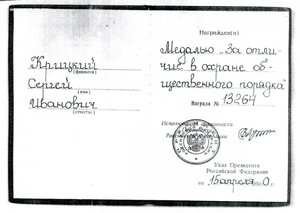 Крицкий
(фамилия)
Сергей
(имя)
Иванович
(отчество)
Награжден(а)
Медалью „За отли-
чие в охране об-
щественного порядка"
Награда № 13264
Российской Федерации
Указ Президента
Российской Федерации
от 15 апреля